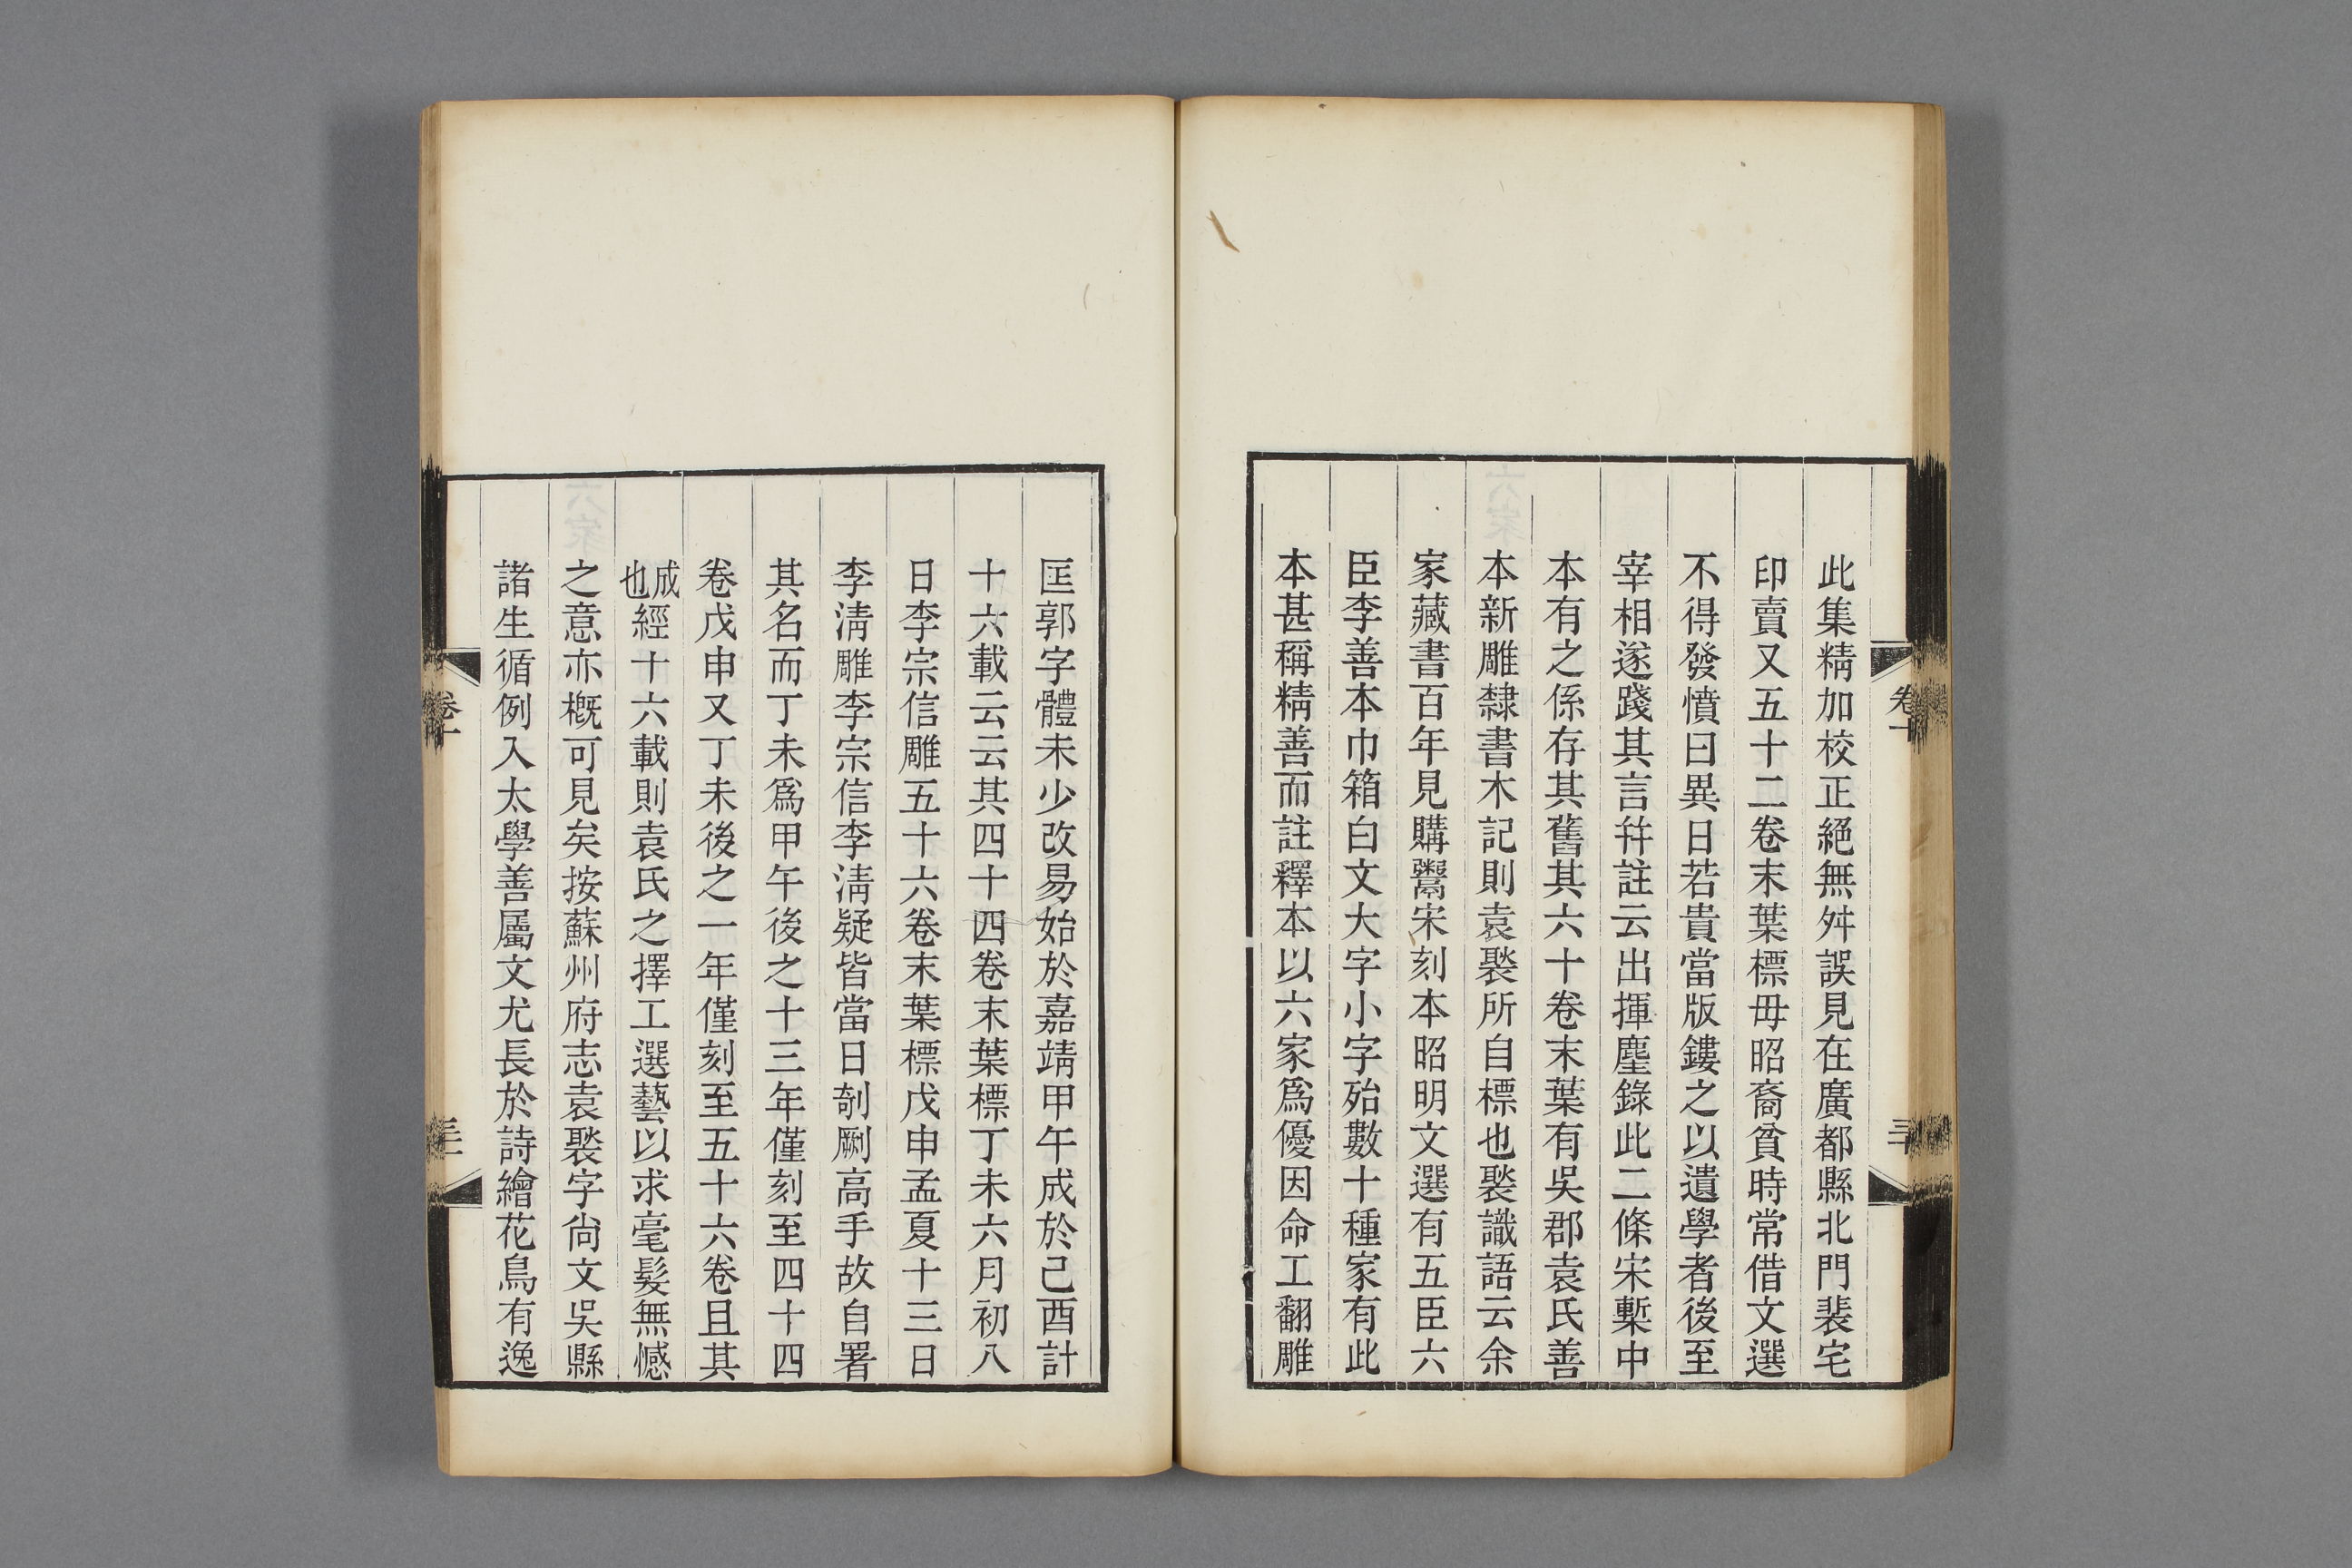 此集精加校正絕無舛誤見在廣都縣北門裴宅
印賣又五十二卷末葉標毋昭裔貧時常借文選
不得發憤曰異日若貴當版鏤之以遺學者後至
宰相遂踐其言幷註云出揮麈錄此二條宋槧中
本有之係存其舊其六十卷末葉有吳郡袁氏善
本新雕隸書木記則袁褧所自標也褧識語云余
家藏書百年見購鬻宋刻本昭明文選有五臣六
臣李善本巾箱白文大字小字殆數十種家有此
本甚稱精善而註釋本以六家爲優因命工翻雕
匡郭字體未少改易始於嘉靖甲午成於己酉計
十六載云云其四十四卷末葉標丁未六月初八
日李宗信雕五十六卷末葉標戊申孟夏十三日
李淸雕李宗信李淸疑皆當日剞劂高手故自署
其名而丁未爲甲午後之十三年僅刻至四十四
卷戊申又丁未後之一年僅刻至五十六卷且其
成也經十六載則袁氏之擇工選藝以求毫髮無憾
之意亦槪可見矣按蘇州府志袁褧字尙文吳縣
諸生循例入太學善屬文尤長於詩繪花鳥有逸